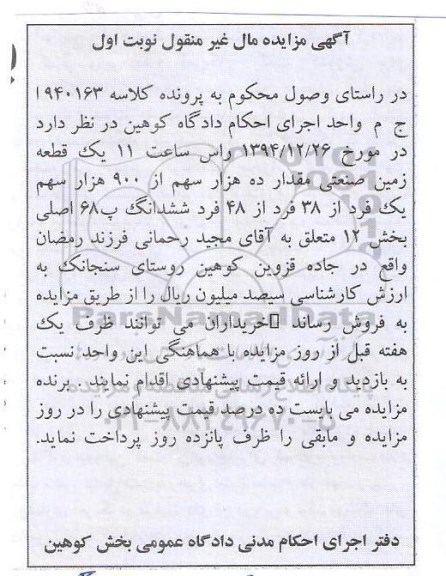 آگهی مزایده مال غیر منقول نوبت اول
در راستای وصول محکوم به پرونده کلاسه ۹۴۰۱۶۳ا
ج م واحد اجرای احکام دادگاه کوهین در نظر دارد
در مورخ ۱۳۹۴/۱۲/۲۶ راس ساعت ۱۱ یک قطعه
زمین صنعتی مقدار ده هزار سهم از ۹۰۰ هزار سهم
یک فرد از ۳۸ فرد از ۴۸ فرد ششدانگ پ۶۸ اصلی
بخش ۱۲ متعلق به آقای مجید رحمانی فرزند رمضان
واقع در جاده قزوین کوهین روستای سنجانک به
ارزش کارشناسی سیصد میلیون ریال را از طریق مزایده
به فروش رساند خریداران می توانند ظرف یک
هفته قبل از روز مزایده با هماهنگی این واحد نسبت
به بازدید و ارائه قیمت پیشنهادی اقدام نمایند . برنده
مزایده می بایست ده درصد قیمت پیشنهادی را در روز
مزایده و مابقی را ظرف پانزده روز پرداخت نماید.
دفتر اجرای احکام مدنی دادگاه عمومی بخش کوهین
ParsNamadData